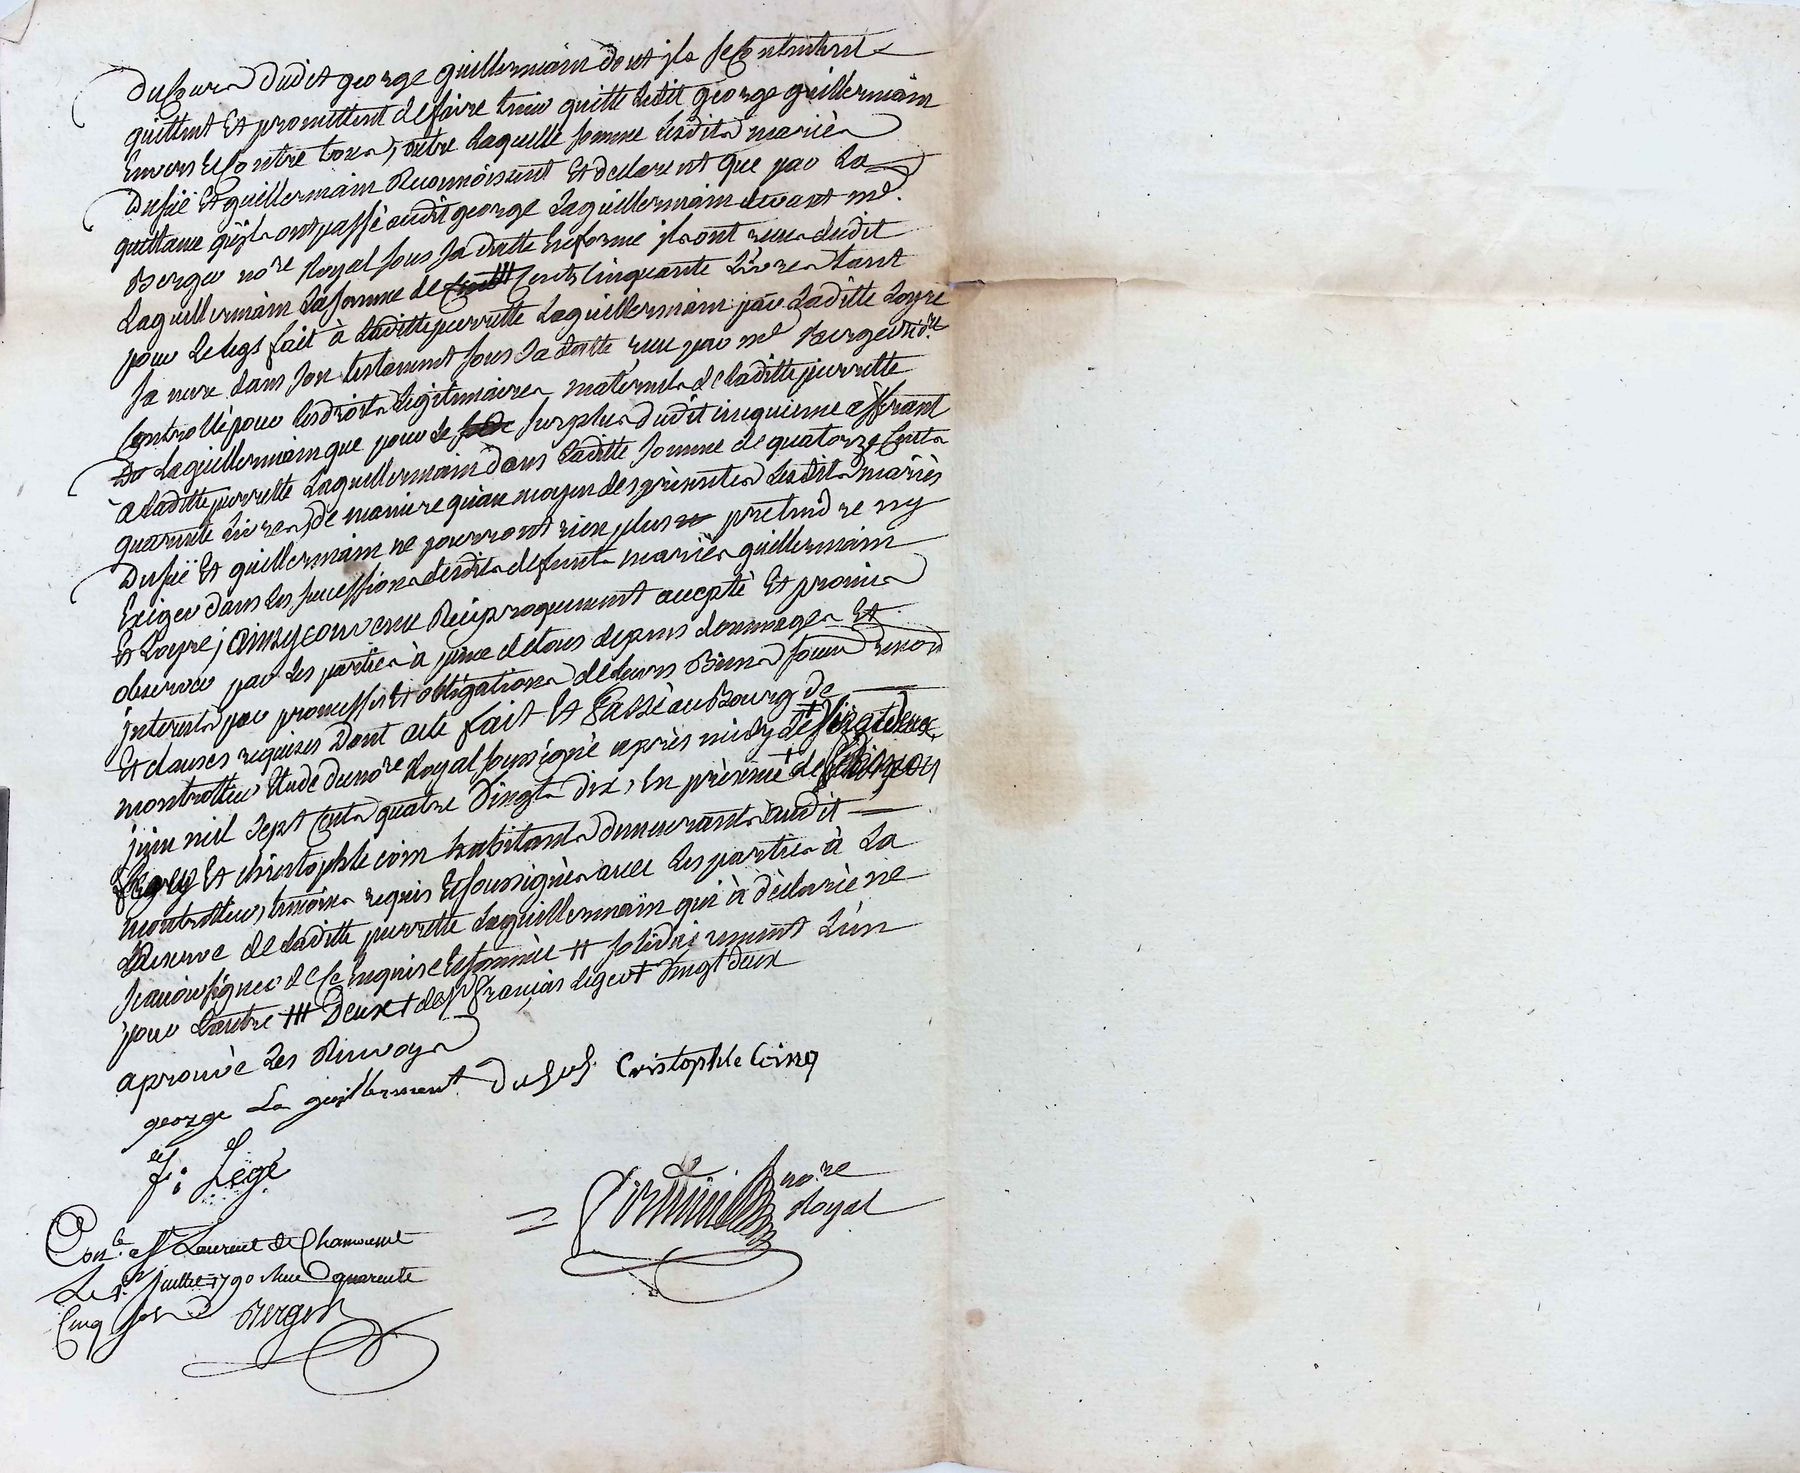 dudit george guillermain dont ils se Contentent
quittent Et promettent de faire tenir quitte Ledit george guillermain
Envers Et Contre tous, outre Laquelle somme Lesdits mariés
Et guillermain Reconnoissent Et declarent que par La
quittance qu'ils ont passé audit george Laguillermain devant me.
Berger nore Royal sous Sa datte En forme ils ont reçu dudit
Laguillermain La somme de Cents Cinquante Livres tant
pour Le legs fait à Laditte pierrette Laguillermain par Laditte Loyre
Sa mere dans Son testament sous Sa datte reçu par me Berger nore
Controllé pour les droits Légitimaires maternels de Laditte pierrette
Laguillermain que pour Le surplus dudit cinquieme afferant
à Laditte pierrette Laguillermain dans Laditte somme de quatorze Cents
quarante Livres, de maniere qu'au moyen des présentes Lesdits mariés
Et guillermain ne pourront rien plus pretendre ny
Exiger dans Les successions desdits defunts mariés guillermain
Et Loyre; ainsy convenu Réciproquement accepté Et promis
observer par Les parties à peine de tous depens dommages Et
interets par promesses Et obligations de Leurs Biens
Et clauses requises Dont acte fait Et Passé au Bourg de
montrottier Etude du nore Royal soussigné après midy Le vingt deux
juin mil Sept Cents quatre Vingts dix, En présence de
Et christophle coin habitants demeurants audit
montrottier, témoins requis Et soussignés avec Les parties à La
Reserve de Laditte pierrette Laguillermain qui à déclaré ne
scavoir signer de ce Enquise Et sommée # solidairement L'un
pour L'autre ### Deux + de Sr françois Legé + Vingt deux
aprouvé Les Renvoys
george La guillerment Cristophle Coing
f: Legé
nore
Royal
Conlé St Laurent de Chamousset
Le 1er juillet 1790 Reçu quarente
Cinq sols Berger